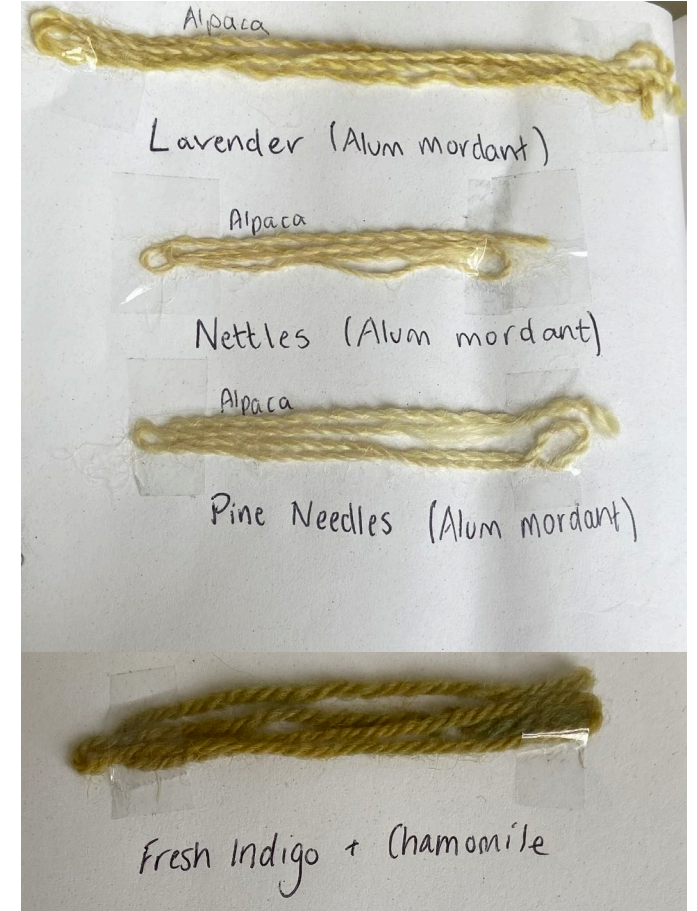 Alpaca
Lavender (Alum mordant)
Alpaca
Nettles (Alum mordant)
Alpaca
Pine Needles (Alum mordant)
Fresh Indigo + Chamomile